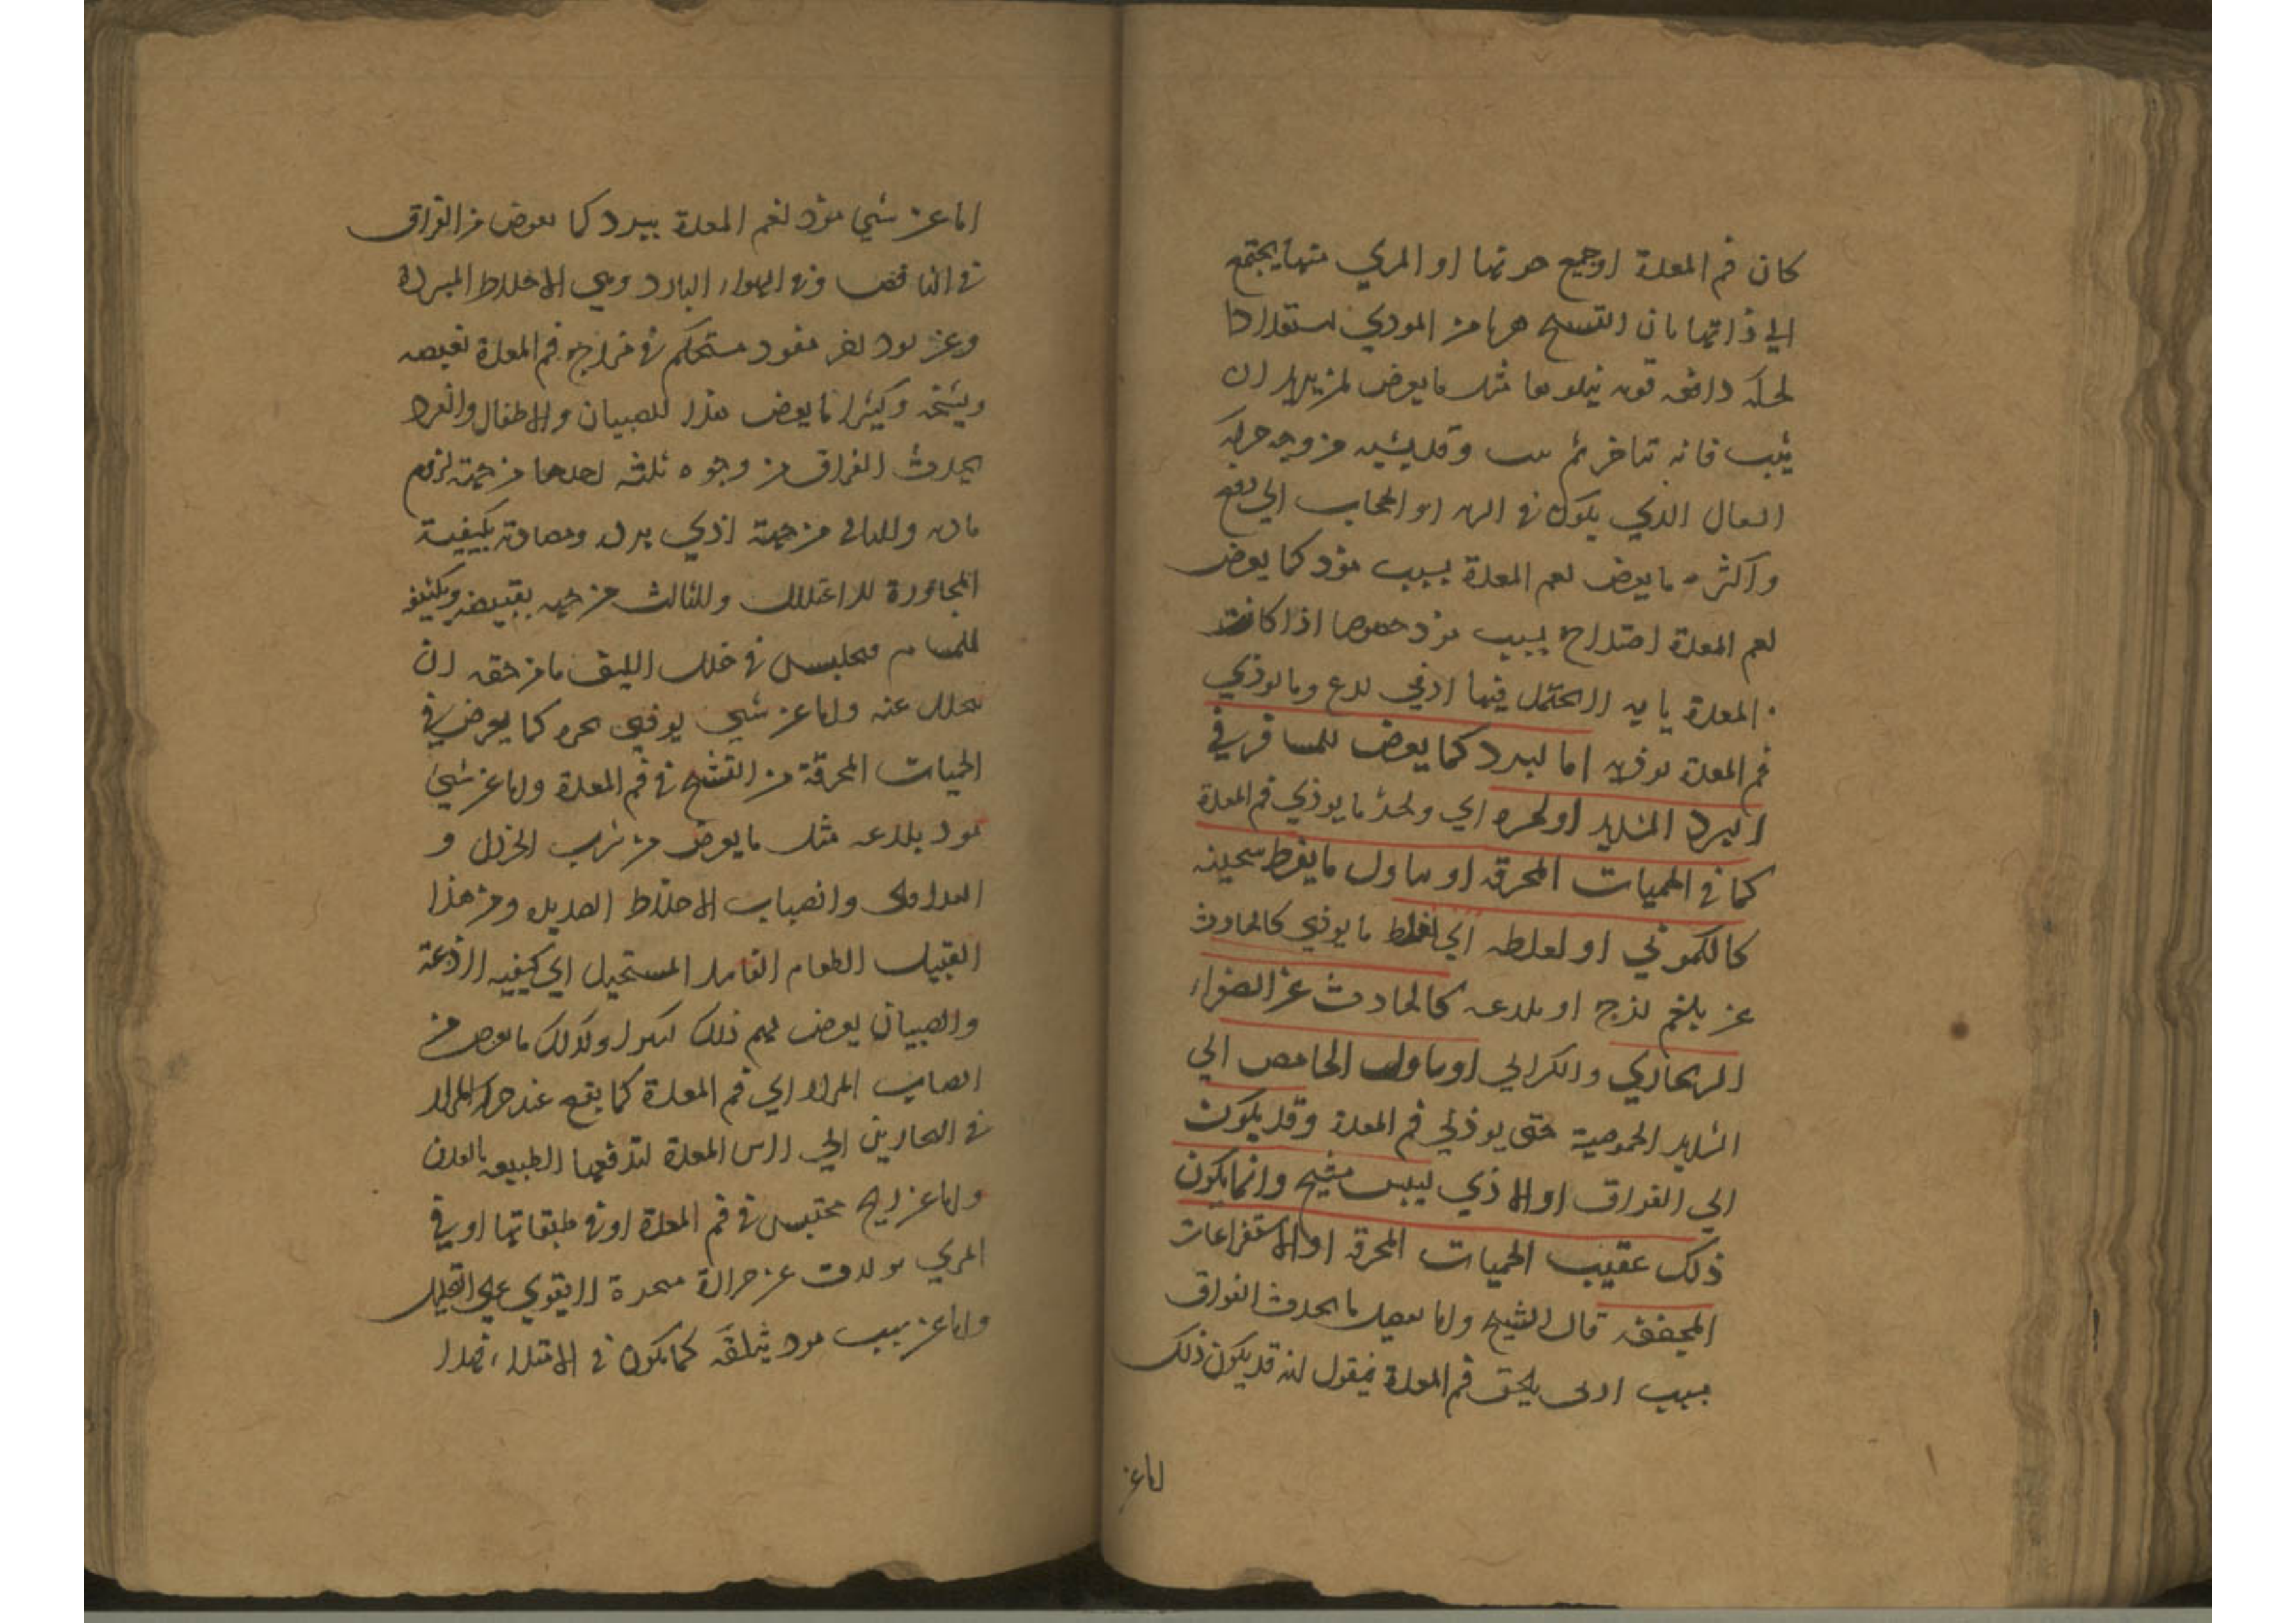 كان فم المعدة او جميع جرمها او المري منها يجتمع
الي ذاتها بان التشنج هربا من الموذي استعدادا
لحركة دافعه قويه يتلوها مثل ما يعرض لمن يريد ان
يثب فانه يتاخر ثم يثب وقد يشبه من وجه حركة
السعال الذي يكون في الريه او الحجاب الي دفع
واكثره ما يعرض لفم المعدة بسبب موذ كما يعرض
لفم المعدة اختلاج بسبب موذ خصوصا اذا كانت
المعدة يابسه لا يحتمل فيها ادني لدع وما يوذي
فم المعدة يوذيه اما لبرد كما يعرض للمسافر في
البرد الشديد او لحره اي ولحر ما يوذي فم المعدة
كما في الحميات المحرقه او تناول ما يفرط تسخينه
كالكموني او لغلظه اي لغلظ ما يوذي كالحادث
عن بلغم لزج او بلدعه كالحادث عن الصفراء
الزنجاري والكراثي او تناول الحامض الي
الشديد الحموصية حتى يوذي فم المعدة وقد يكون
الي الفواق او الاذي ليبس مشنج وانما يكون
ذلك عقيب الحميات المحرقه او الاستفراغات
المجففه قال الشيخ واما تفصيل ما يحدث الفواق
بسبب اذى يلحق فم المعدة فنقول انه قد يكون ذلك
اما عن
اما عن شي موذ لفم المعدة ببرد كما يعرض من الفواق
في النافض وفي الهواء البارد وفي الاخلاط المبردة
وعن برد اخر مستحكم في مزاج فم المعدة يقبضه
ويشنجه وكثيرا ما يعرض هذا للصبيان والاطفال والبرد
يحدث الفواق من وجوه ثلثه احدها من جهة لزوم
مادة والثاني من جهة اذي برد ومضادته بكيفية
المجاوزة للاعتدال والثالث من جهه تقبيضه وتكثيفه
للمسام فيحتبس في خلل الليف ما من حقه ان
يتحلل عنه واما عن شي يوذي بحره كما يعرض في
الحميات المحرقة من التشنج في فم المعدة واما عن شي
موذ بلدعه مثل ما يعرض من شرب الخردل و
الفلافلى وانصباب الاخلاط الصديديه ومن هذا
القبيل الطعام الفاسد المستحيل الي كيفيه لاذعة
والصبيان يعرض لهم ذلك كثيرا وكذلك ما يعرض من
انصباب المرار الي فم المعدة كما يقع عند حركة المرار
في البحارين الي راس المعدة لتدفعها الطبيعه بالقذف
واما عن ريح محتبس في فم المعدة او في طبقاتها او في
المري تولدت عن حرارة مبخرة لا يقوي علي التحليل
واما عن سبب موذ بثقله كما يكون في الامتلاء فهذا